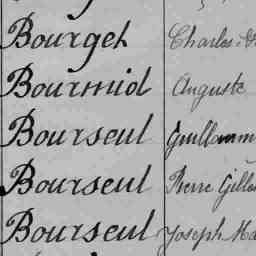 Bourget Charles
Bourmiol Auguste
Bourseul Guillaume
Bourseul Pierre
Bourseul Joseph